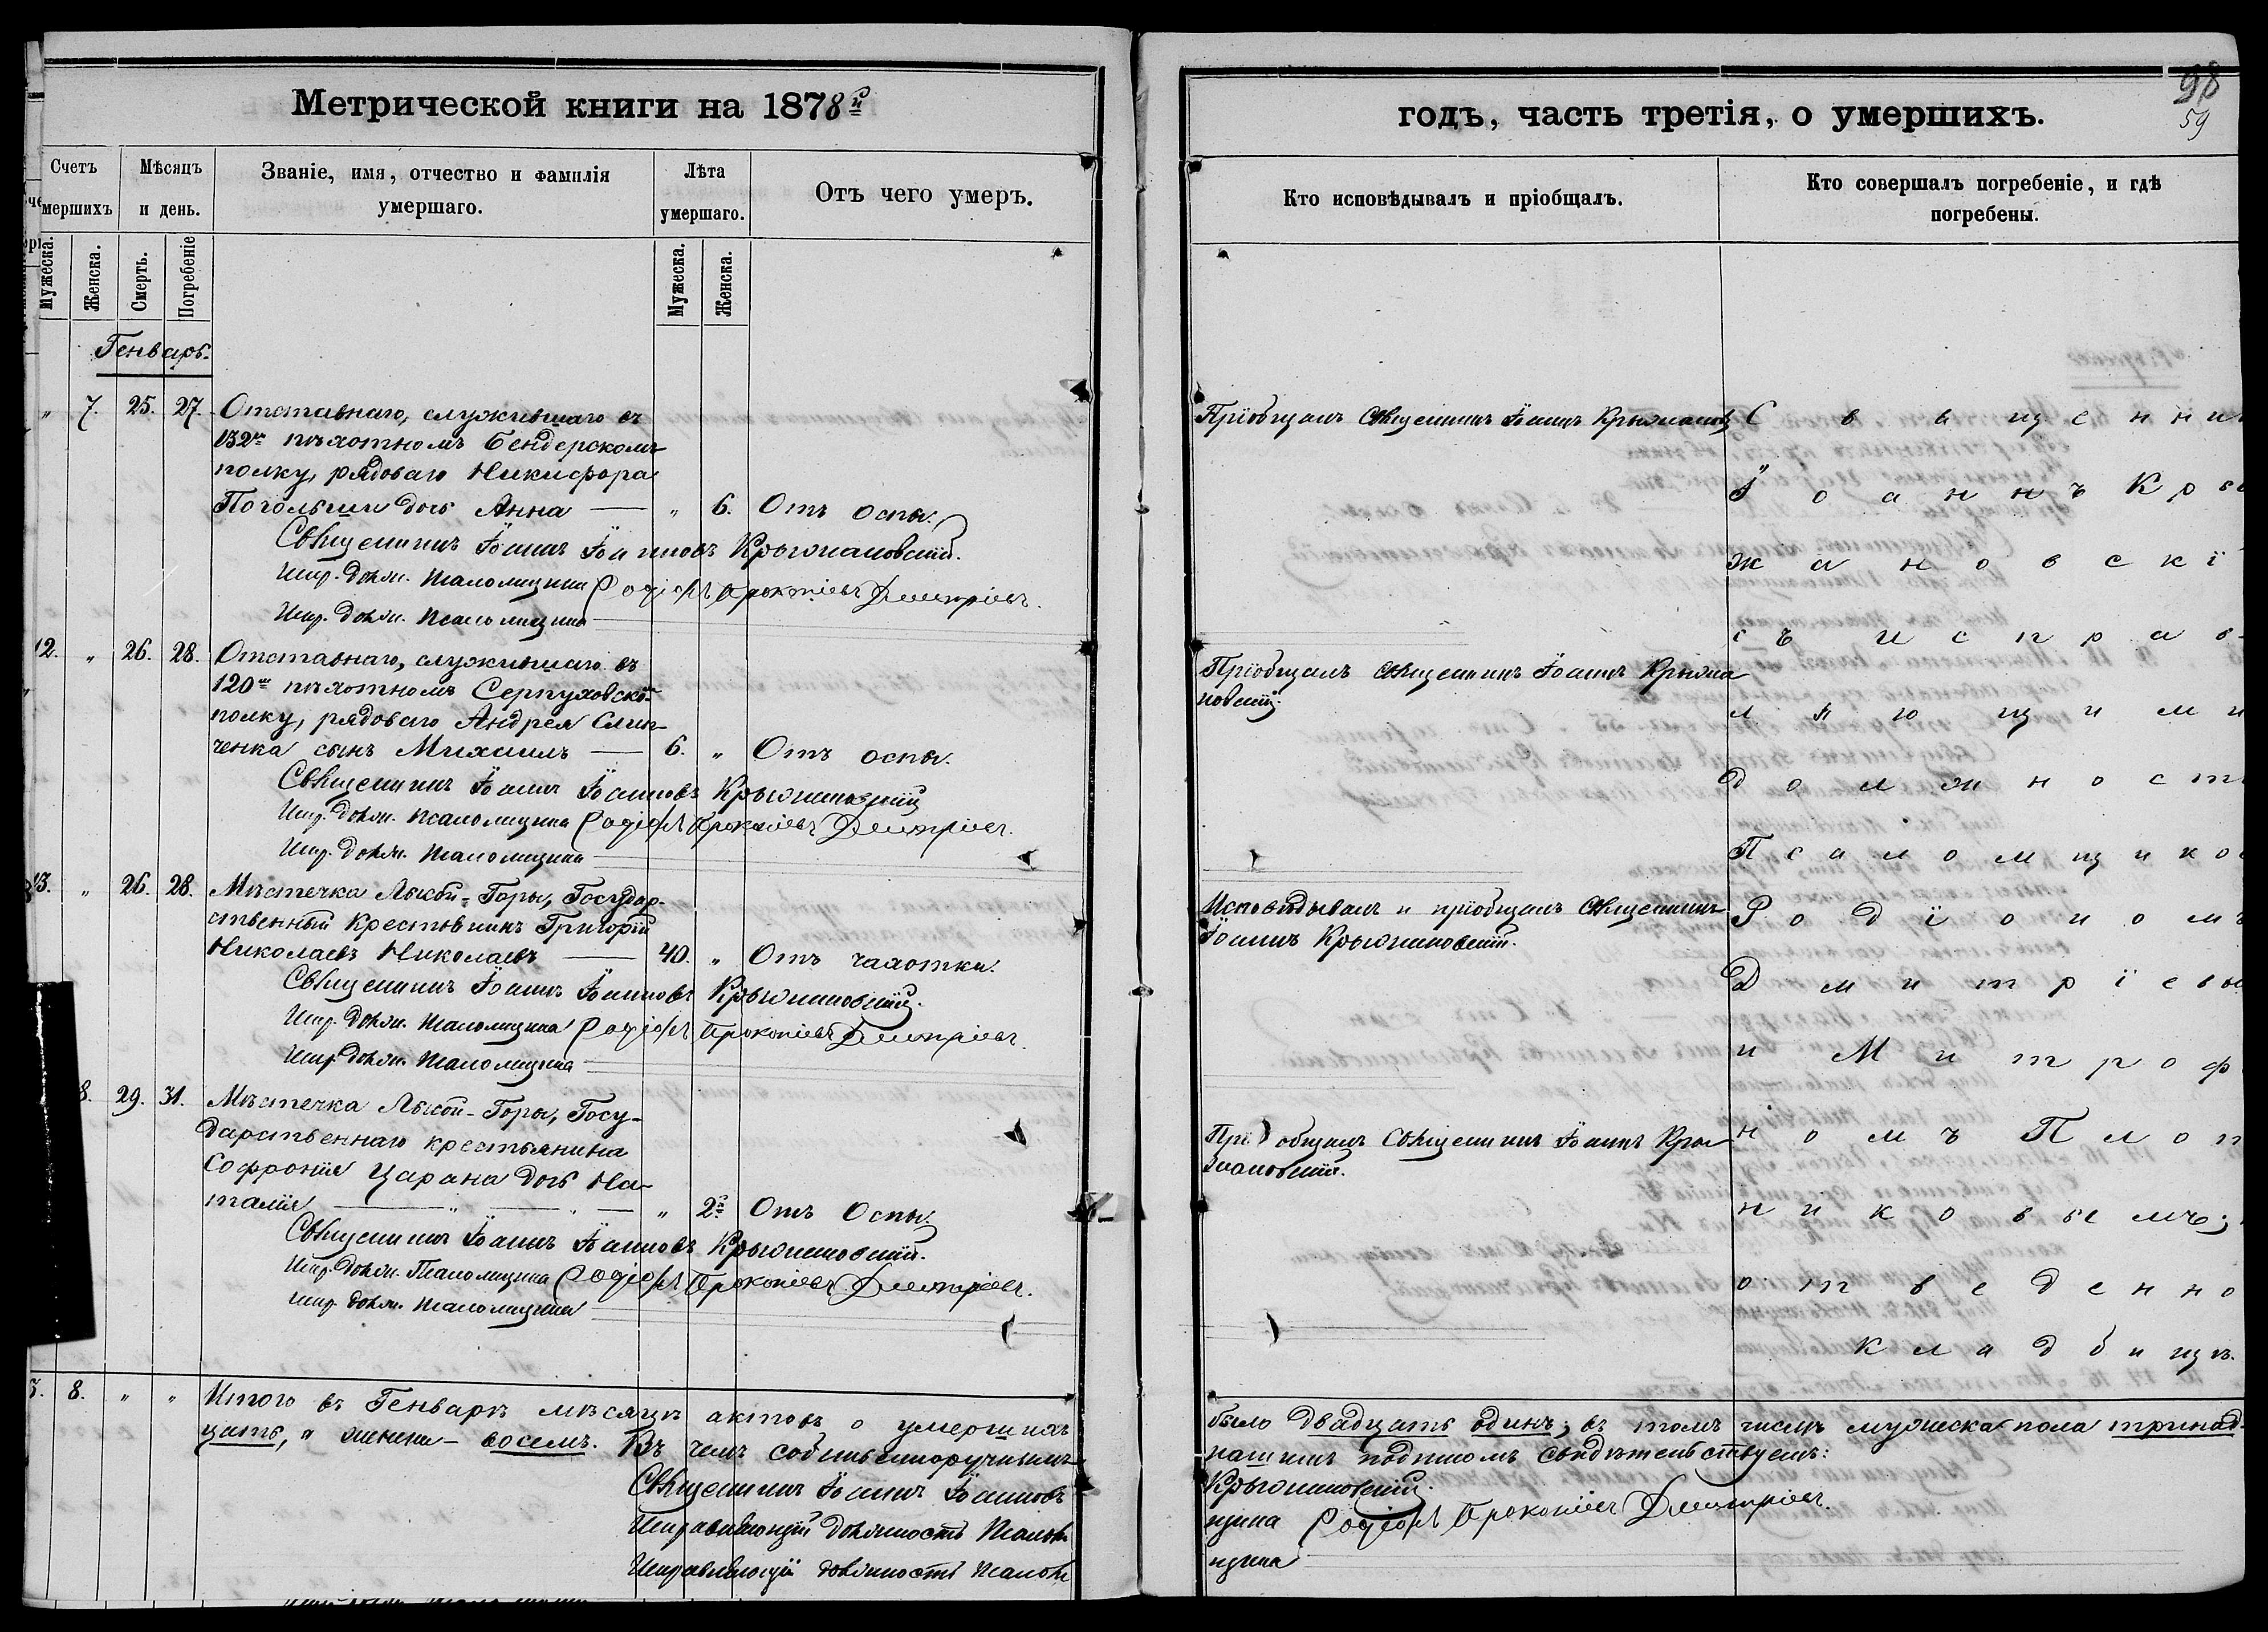 Метрической книги на 1878й
годъ, часть третія, о умершихъ.
98
59
Счетъ
мершихъ
Мѣсяцъ
и день.
Званіе, имя, отчество и фамилія
умершаго.
Лѣта
умершаго.
Отъ чего умеръ.
Кто исповѣдывалъ и пріобщалъ.
Кто совершалъ погребеніе, и гдѣ
погребены.
Мужеска.
Женска.
Смерть.
Погребеніе
Мужеска.
Женска.
Генварь.
„ 7. 25. 27. Отставнаго, служившаго въ
132мъ пѣхотномъ Бендерскомъ
полку, рядоваго Никифора
дочь Анна — „ 6. Отъ оспы.
Священникъ Іоаннъ Іоанновъ Крыжановскій.
Испр. долж. Псаломщика Родіонъ Прокопіевъ Дмитріевъ.
Испр. долж. Псаломщика
12. „ 26. 28. Отставнаго, служившаго въ
120мъ пѣхотномъ Серпуховскомъ
полку, рядоваго Андрея Слин-
ченка сынъ Михаилъ — 6. „ Отъ оспы.
Священникъ Іоаннъ Іоанновъ Крыжановскій
Испр. долж. Псаломщика Родіонъ Прокопіевъ Дмитріевъ.
Испр. долж. Псаломщика
13. „ 26. 28. Мѣстечка Лысой-Горы, Государ-
ственный крестьянинъ Григорій
Николаевъ Николаевъ — 40. „ Отъ чахотки.
Священникъ Іоаннъ Іоанновъ Крыжановскій.
Испр. долж. Псаломщика Родіонъ Прокопіевъ Дмитріевъ.
Испр. долж. Псаломщика
8. 29. 31. Мѣстечка Лысой-Горы, Госу-
дарственнаго крестьянина
Софронія Царана дочь На-
талія — „ — „ — „ 2й Отъ Оспы.
Священникъ Іоаннъ Іоанновъ Крыжановскій.
Испр. долж. Псаломщика Родіонъ Прокопіевъ Дмитріевъ.
Испр. долж. Псаломщика
Пріобщалъ Священникъ Іоаннъ Крыжановск
Пріобщалъ Священникъ Іоаннъ Крыжа
новскій.
Исповѣдывалъ и пріобщалъ Священникъ
Іоаннъ Крыжановскій.
Пріобщалъ Священникъ Іоаннъ Кры
жановскій.
Священник
Іоаннъ Кры
жановскі
съ исправ-
ляющими
должност
Псаломщиков
Родіономъ
Дмитріевы
и Митроф
номъ Плот
никовымъ;
отведенно
кладбищѣ.
3. 8. „ „ Итого въ Генварѣ мѣсяцѣ актовъ о умершихъ было двадцать одинъ; въ томъ числѣ мужеска пола тринад-
цать, а женска - восемь. Въ чемъ собственноручнымъ нашимъ подписомъ свидѣтельствуемъ:
Священникъ Іоаннъ Іоанновъ Крыжановскій.
Исправляющій должность Псалом щика Родіонъ Прокопіевъ Дмитріевъ.
Исправляющій должность Псалом щика